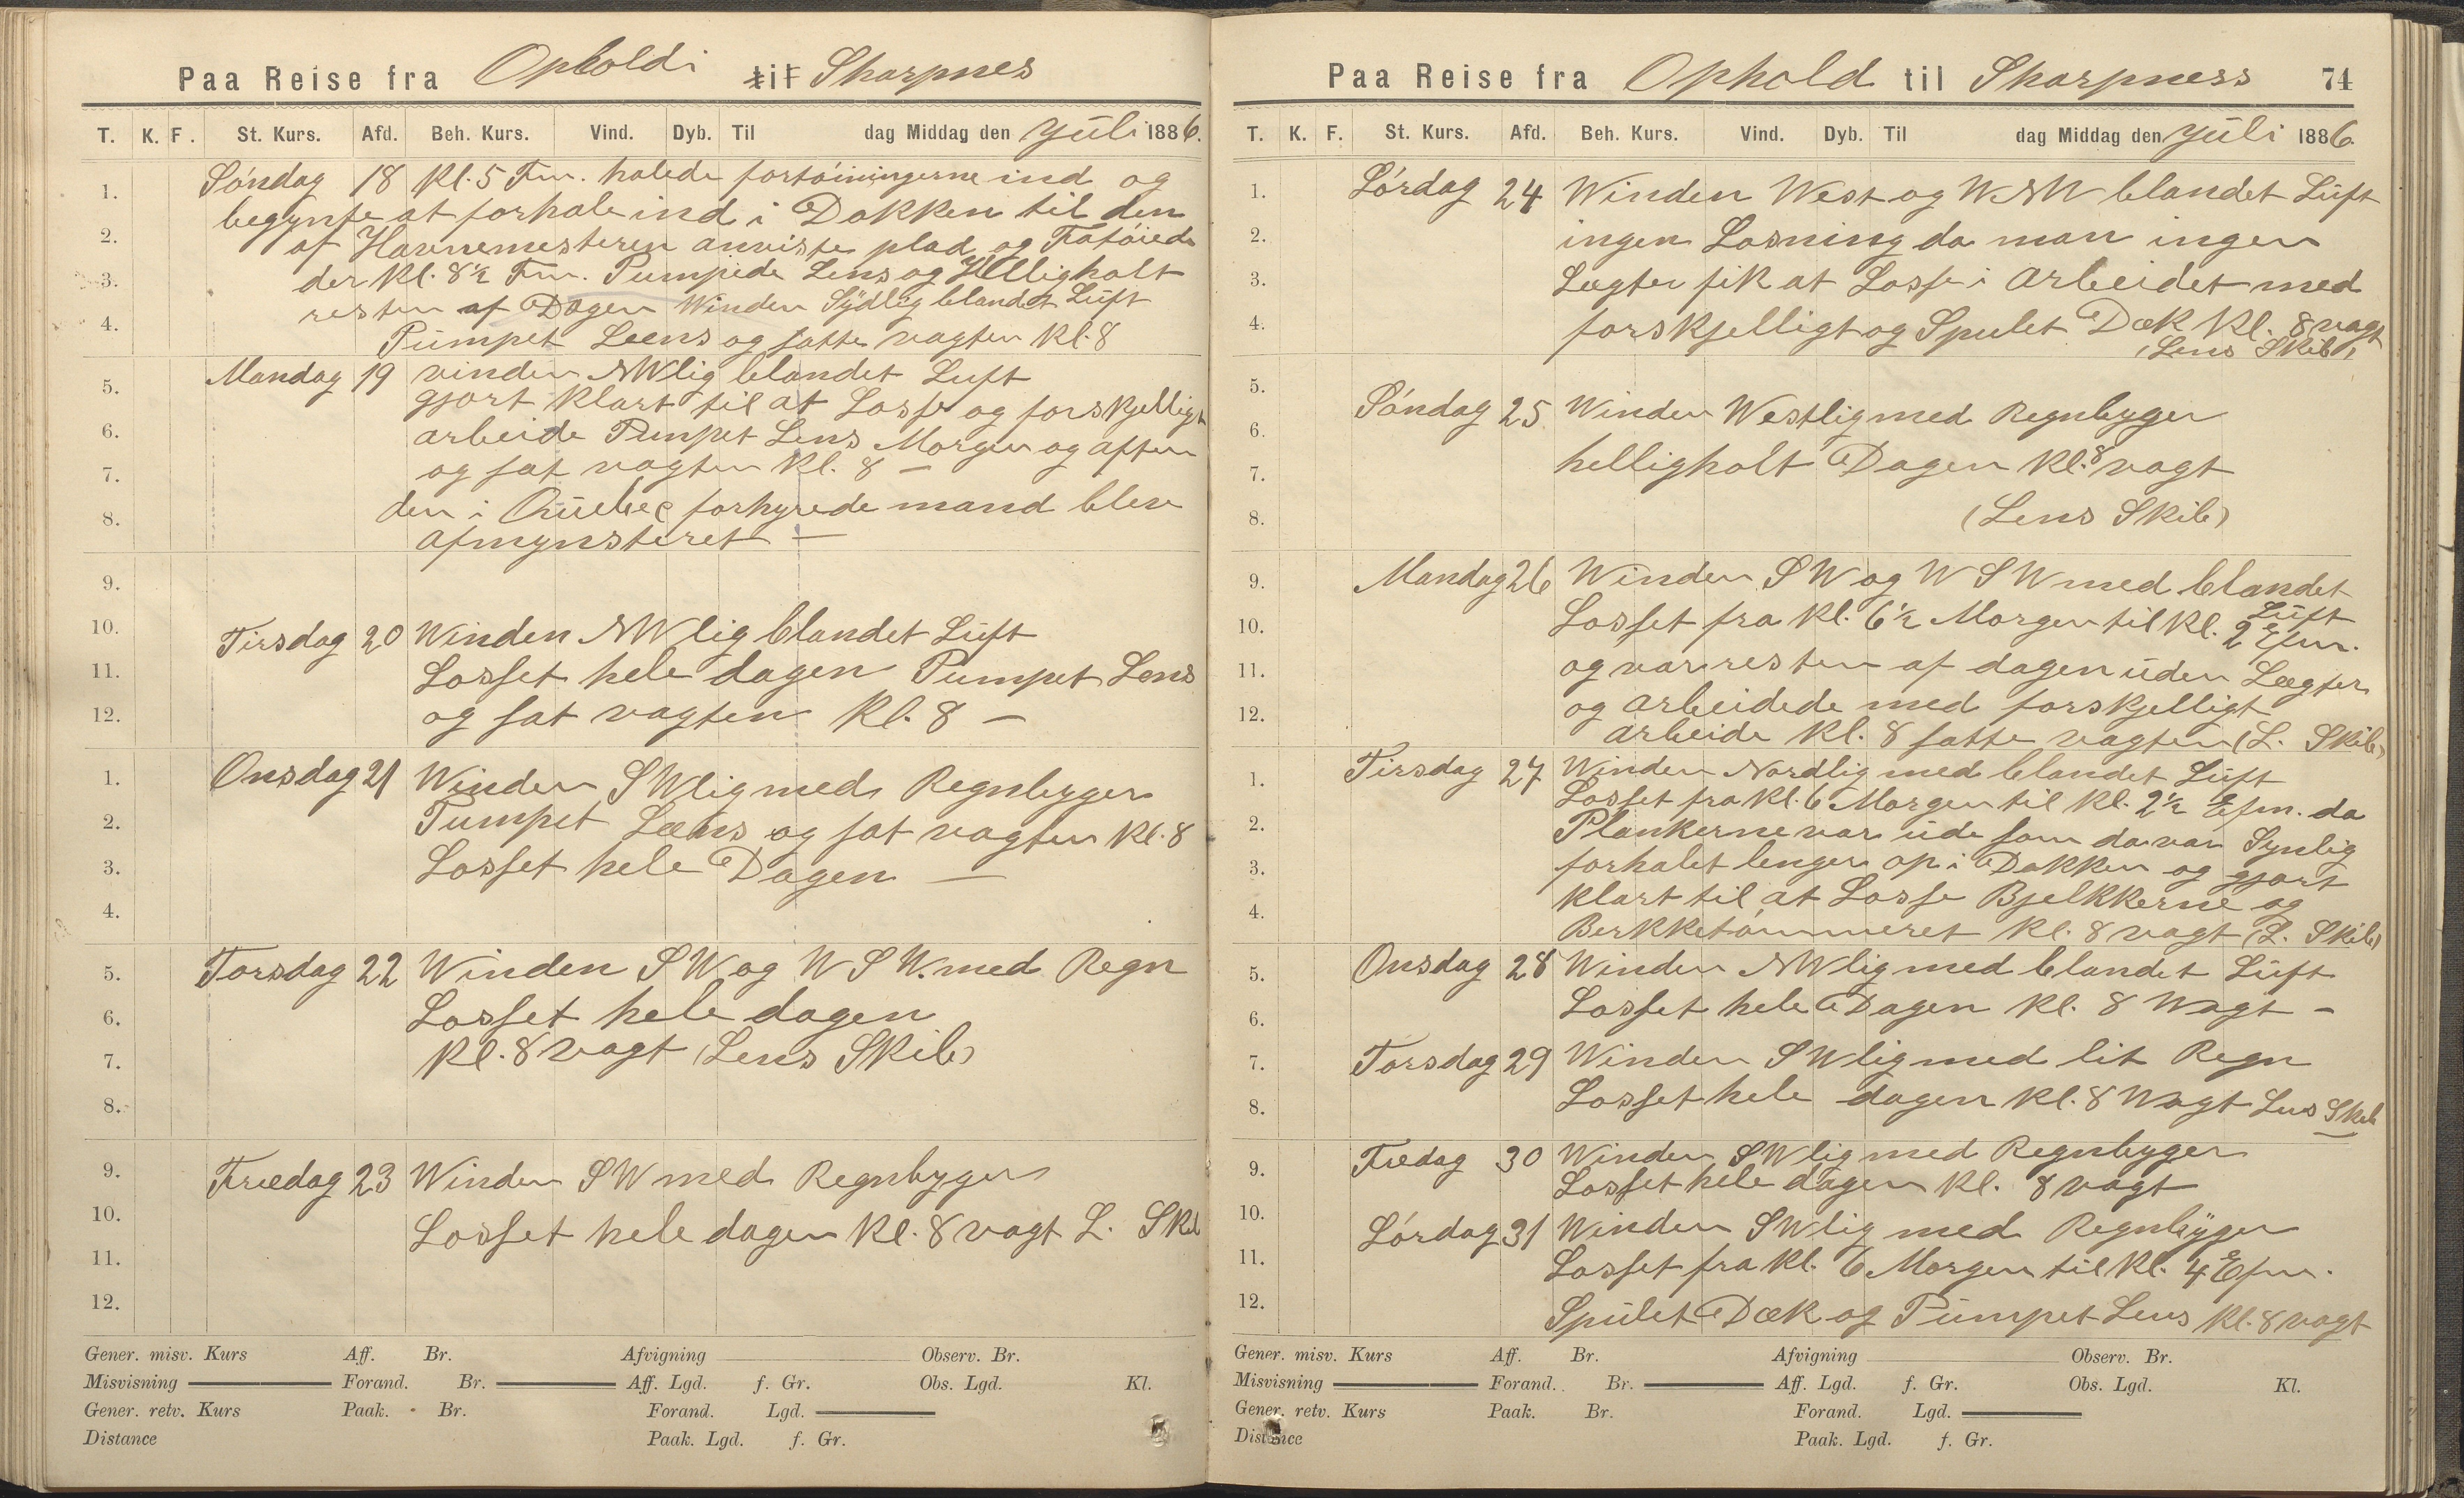 Paa Reise fra Ophold i til Sharpnes
T. K. F. St. Kurs. Afd. Beh. Kurs. Vind. Dyb. Til dag Middag den Juli 1886.
1. Söndag 18 Kl. 5 Fm. halede fortöiningerne ind og
begynte at forhale ind i Dokken til den
2. af Havnemesteren anviste plad og Fatöiede
3. der Kl. 8½ Fm. Pumpede Lens og Helligholt
resten af Dagen Winden Sydlig blandet Luft
4. Pumpet Leens og satte vagten Kl. 8
5. Mandag 19 vinden NWlig blandet Luft
gjort Klart til at Losse og forskjelligt
6. arbeide Pumpet Lens Morgen og aften
7. og sat vagten Kl. 8 —
8. den i Quebec forhyrede mand blev
afmynsteret —
9.
10. Tirsdag 20 Winden NWlig blandet Luft
11. Losset hele dagen Pumpet Lens
12. og sat vagten Kl. 8 —
1. Onsdag 21 Winden SWlig med Regnbyger
2. Pumpet Læns og sat vagten Kl. 8
3. Losset hele Dagen —
4.
5. Torsdag 22 Winden SW og WSW. med Regn
6. Losset hele dagen
7. Kl. 8 vagt (Lens Skib)
8.
9. Fredag 23 Winden SW med Regnbyger
10. Losset hele dagen Kl. 8 vagt L. Skib
11.
12.
Gener. misv. Kurs Aff. Br. Afvigning Observ. Br.
Misvisning Forand. Br. Aff. Lgd. f. Gr. Obs. Lgd. Kl.
Gener. retv. Kurs Paak. Br. Forand. Lgd.
Distance Paak. Lgd. f. Gr.
Paa Reise fra Ophold til Sharpness 74
T. K. F. St. Kurs. Afd. Beh. Kurs. Vind. Dyb. Til dag Middag den Juli 1886.
1. Lördag 24 Winden West og WNW blandet Luft
2. ingen Losning da man ingen
3. Lægter fik at Losse i Arbeidet med
4. forskjelligt og Spulet Dæk Kl. 8 vagt
(Lens Skib)
5. Söndag 25 Winden Westlig med Regnbyger
6.
7. helligholt Dagen Kl. 8 vagt
8. (Lens Skib)
9. Mandag 26 Winden SW og WSW med blandet
Luft
10. Losset fra Kl. 6½ Morgen til Kl. 2 Efm.
11. og var resten af dagen uden Lægter
12. og arbeidede med forskjelligt
arbeide Kl. 8 satte vagten (L. Skib)
1. Tirsdag 27 Winden Nordlig med blandet Luft
Losset fra Kl. 6 Morgen til Kl. 2½ Efm. da
2. Plankerne var ude som da var Synlig
3. forhalet lenger op i Dokken og gjort
4. klart til at Losse Bjelkkerne og
Berkketömmeret Kl. 8 vagt (L. Skib)
5. Onsdag 28 Winden NWlig med blandet Luft
6. Losset hele Dagen Kl. 8 Wagt –
7. Torsdag 29 Winden SWlig med lit Regn
8. Losset hele dagen Kl. 8 Wagt Lens Skib
9. Fredag 30 Winden SWlig med Regnbyger
Losset hele dagen Kl. 8 vagt
10. Lördag 31 Winden SWlig med Regnbyger
11. Losset fra Kl. 6 Morgen til Kl. 4 Efm.
12. Spulet Dæk og Pumpet Lens Kl. 8 vagt
Gener. misv. Kurs Aff. Br. Afvigning Observ. Br.
Misvisning Forand. Br. Aff. Lgd. f. Gr. Obs. Lgd. Kl.
Gener. retv. Kurs Paak. Br. Forand. Lgd.
Distance Paak. Lgd. f. Gr.